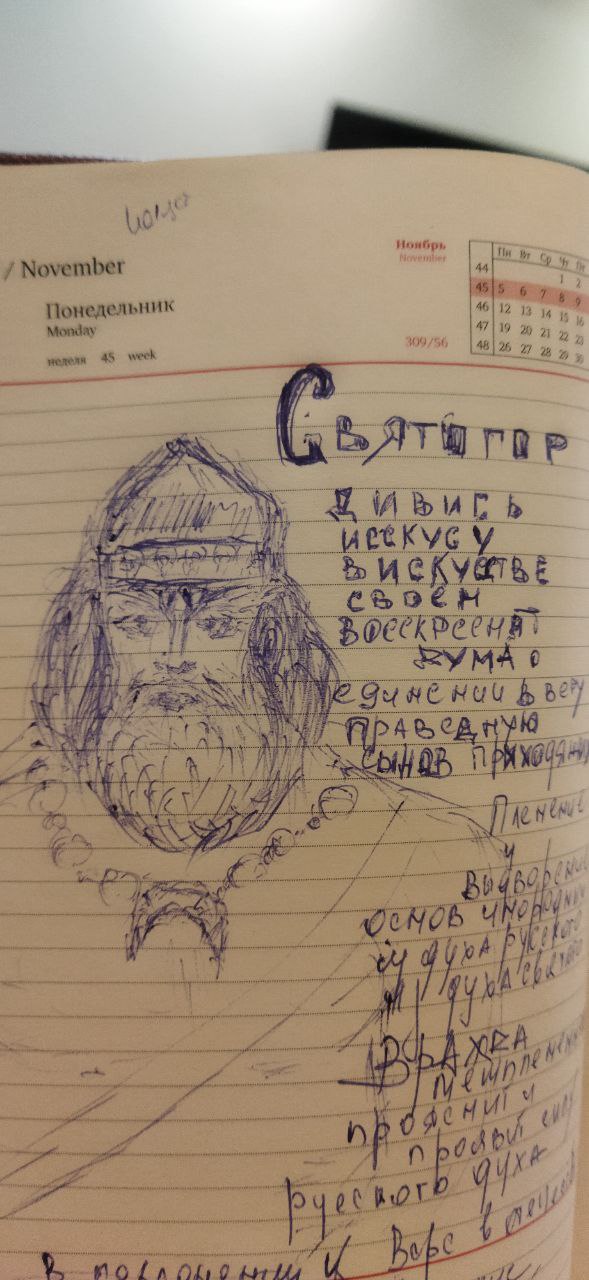 / November
Понедельник
Monday
неделя 45 week
Ноябрь
November
309/56
Пн Вт Ср Чт Пт
44 1 2
45 5 6 7 8 9
46 12 13 14 15 16
47 19 20 21 22 23
48 26 27 28 29 30
Святогор
дивись
исскусу
в искустве
своём
дума о
единении в веру
праведную
сынов
Пленение
и
основ
и духа русского
духа святого
Вражда
прояснит и
проявит
русского духа
в